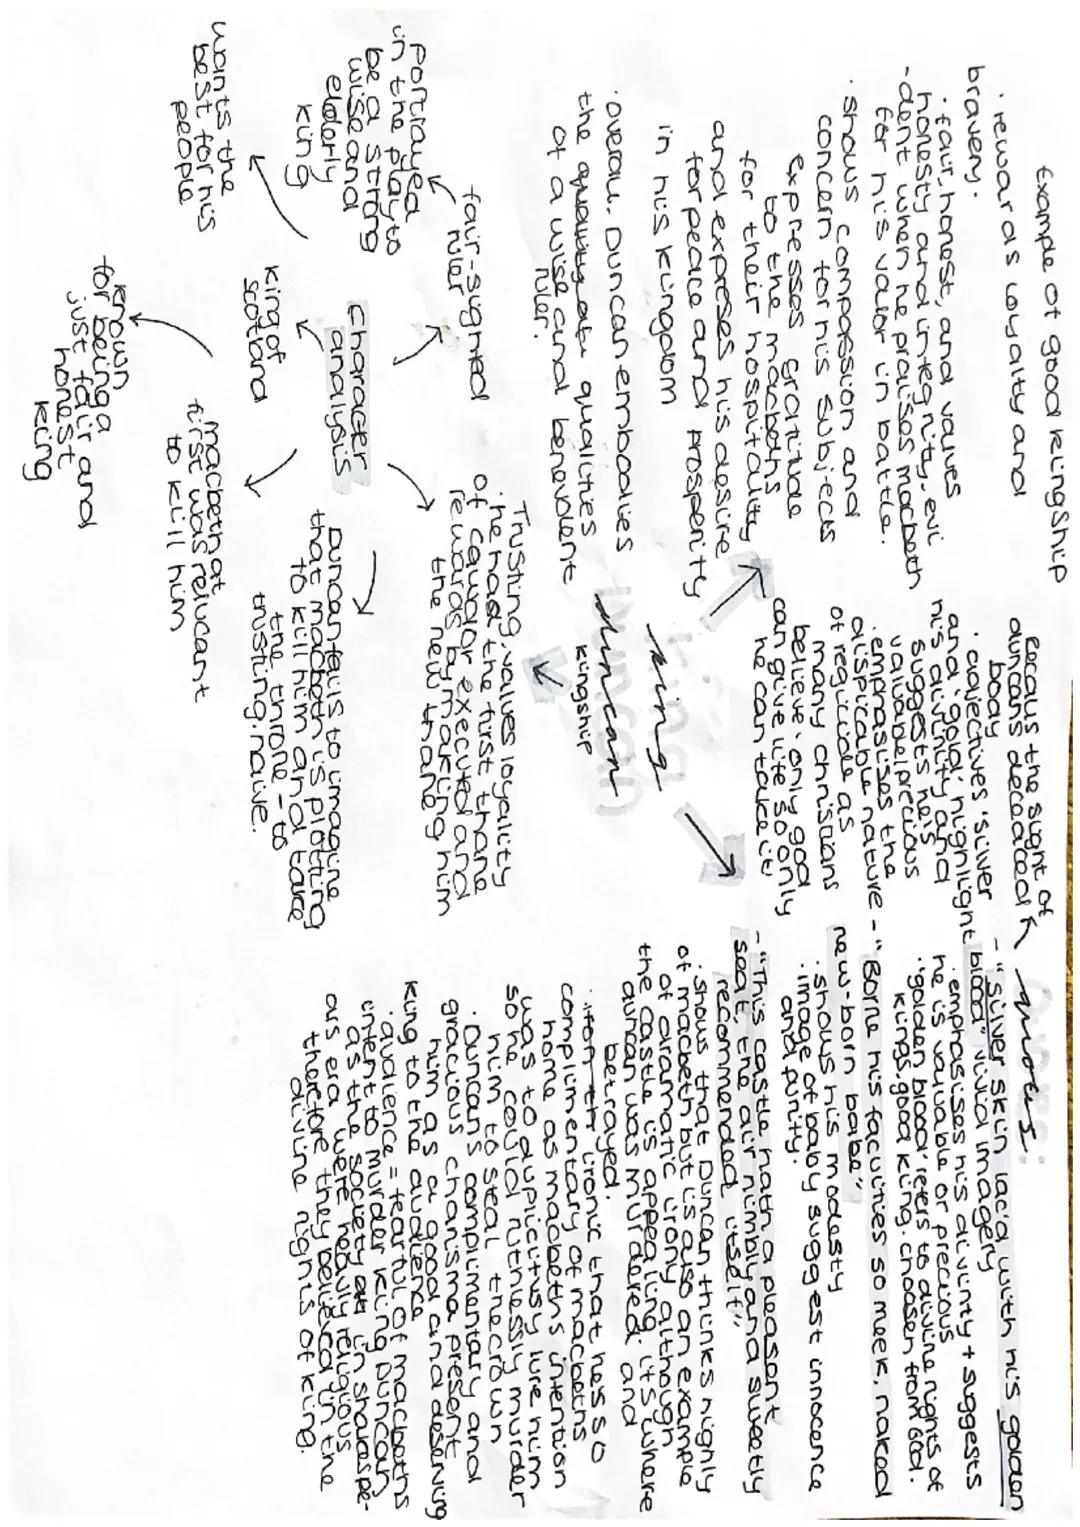 king
duncan
kingship
Example of good kingship
· rewards loyality and
bravery.
· fair, honest, and values
honesty and integrity. evi
-dent when he praises macbeth
for his valor in battle.
· shows compassion and
concern for his subjects
expresses gratitude
to the macbeths
for their hospitality
and expreses his desire
for peace and prosperity
in his kingdom
· overall, Duncan embodies
the quality of qualities
of a wise and benevolent
ruler.
quotes:
- "silver skin lac'd with his golden
blood" vivid imagery
· emphasises his divinity + suggests
he is valuable or precious
· 'golden blood' refers to divine rights of
kings, good king. choosen from God.
focalis the sight of
duncans deceaced
body
· adjectives 'silver
and 'gold' highlight
his divinity and
suggests he is
valuabel precious
· emphasises the
dispicable nature
of regicide as
many christians
believe 'only god
can give life so only
he can take it
- "Borne his faculties so meek, naked
new-born babe"
· shows his modesty
· image of baby suggest innocence
and purity.
- "This castle hath a pleasent
seat, the air nimbly and sweetly
recommended itself"
· shows that Duncan thinks highly
of macbeth but is also an example
of dramatic irony although
the castle is appealing its where
duncan was murdered and
betrayed.
· ironic that hes so
complimentary of macbeths
home as macbeths intention
was to duplicitusy lure him
so he could ruthlessly murder
him to steal the crown
· Duncan's complimentary and
gracious charisma present
him as a good and deserving
king to the audience
· audience = fearful of macbeths
intent to murder king Duncan
as the society in shakespe-
ars era were heavily religious
therefore they believed in the
divine rights of king.
Character
analysis
fair-sighted
ruler
Portrayed
in the play to
be a strong
wise and
elderly
king
wants the
best for his
people
king of
scotland
known
for being a
just fair and
honest
king
macbeth at
first was relucant
to kill him
Duncan fails to imagine
that macbeth is plotting
to kill him and take
the throne - to
trusting, naive.
Trusting, values loyeality
· he had the first thane
of cawdor executed and
rewards by making him
the new thane